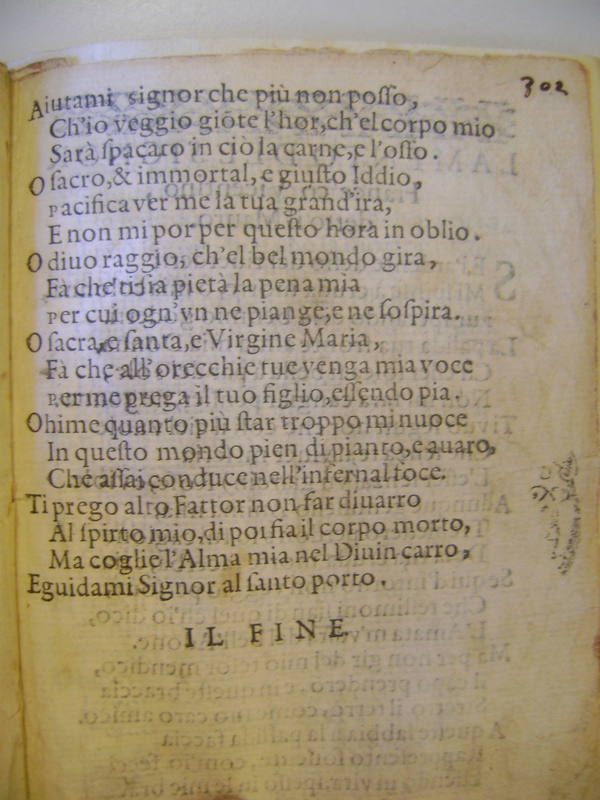 302
Aiutami signor che più non posso,
Ch'io veggio giõte l'hor, ch'el corpo mio
Sarà spacato in ciò la carne, e l'osso.
O sacro, & immortal, e giusto Iddio,
Pacifica ver me la tua grand'ira,
E non mi por per questo hora in oblio.
O diuo raggio, ch'el bel mondo gira,
Fà che ti sia pietà la pena mia
Per cui ogn'vn ne piange, e ne sospira.
O sacra, e santa, e Virgine Maria,
Fà che all'orecchie tue venga mia voce
Per me prega il tuo figlio, essendo pia.
Ohime quanto più star troppo mi nuoce
In questo mondo pien di pianto, e auaro,
Che assai conduce nell'infernal foce.
Ti prego alto Fattor non far diuarro
Al spirto mio, di poi sia il corpo morto,
Ma coglie l'Alma mia nel Diuin carro,
E guidami Signor al santo porto.
IL FINE